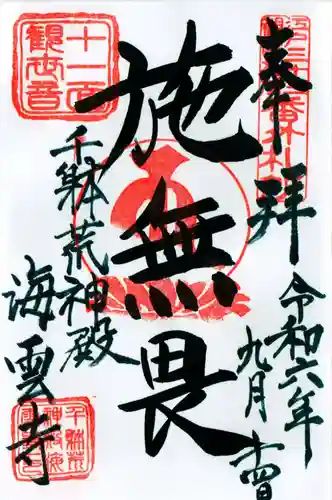 奉拝
令和六年
九月十四日
施無畏
千躰荒神殿
海雲寺
十一面
観世音